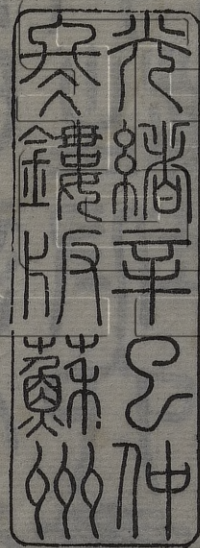 光緖辛巳仲
冬鏤版蘇州